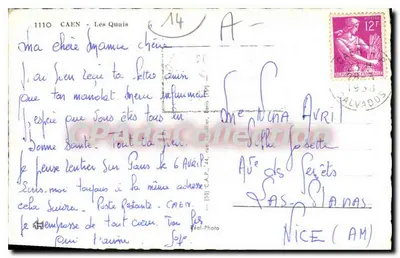 1110 CAEN - Les Quais
14
A-
12F
CALVADOS
Ma chère Maman chérie
J'ai bien reçu ta lettre ainsi
que ton mandat merci infiniment
J'espère que vous êtes tous en
Bonne Santé. Tout va bien
Je pense rentrer sur Paris le 6 AVRIL
Ecris moi toujours à la même adresse
cela suivra. Poste Restante. CAEN.
Je t'embrasse de tout coeur. Ton
qui t'aime
Mme Nina Avril
Villa Josette
AVe de
LAS-PLANAS
NICE (AM)
Réel-Photo